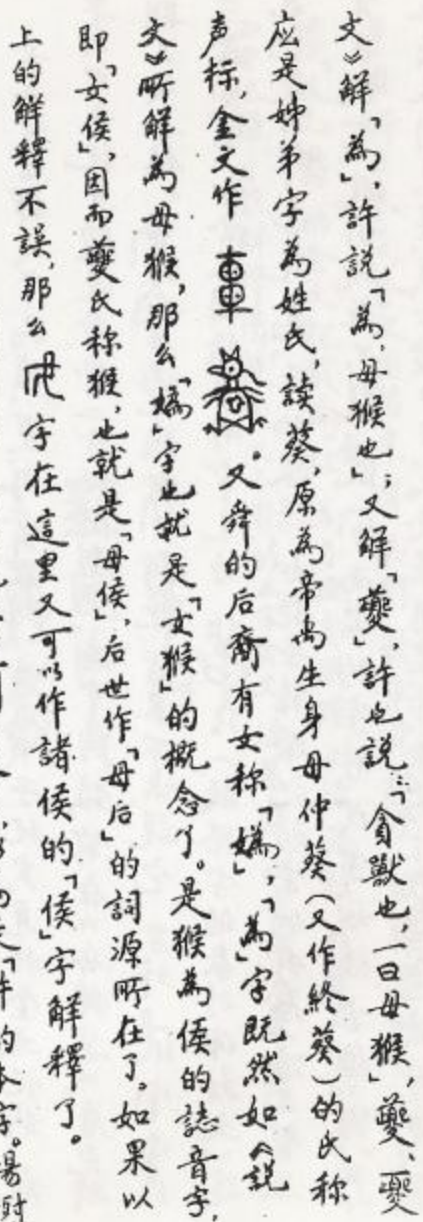 文》解「為」，許説「為，母猴也」；又解「夔」，許也説：「貪獸也，一曰母猴」，夔、夒
应是姊弟字為姓氏，讀葵，原為帝禹生身母仲葵（又作終葵）的氏称
声标，金文作。又舜的后裔有女称「媯」；「為」字既然如《説
文》所解為母猴，那么「媯」字也就是「女猴」的概念了。是猴為侯的諧音字，
即「女侯」，因而夔氏称猴，也就是「母侯」，后世作「母后」的詞源所在了。如果以
上的解釋不誤，那么字在這里又可以作諸侯的「侯」字解釋了。
的本字。湯